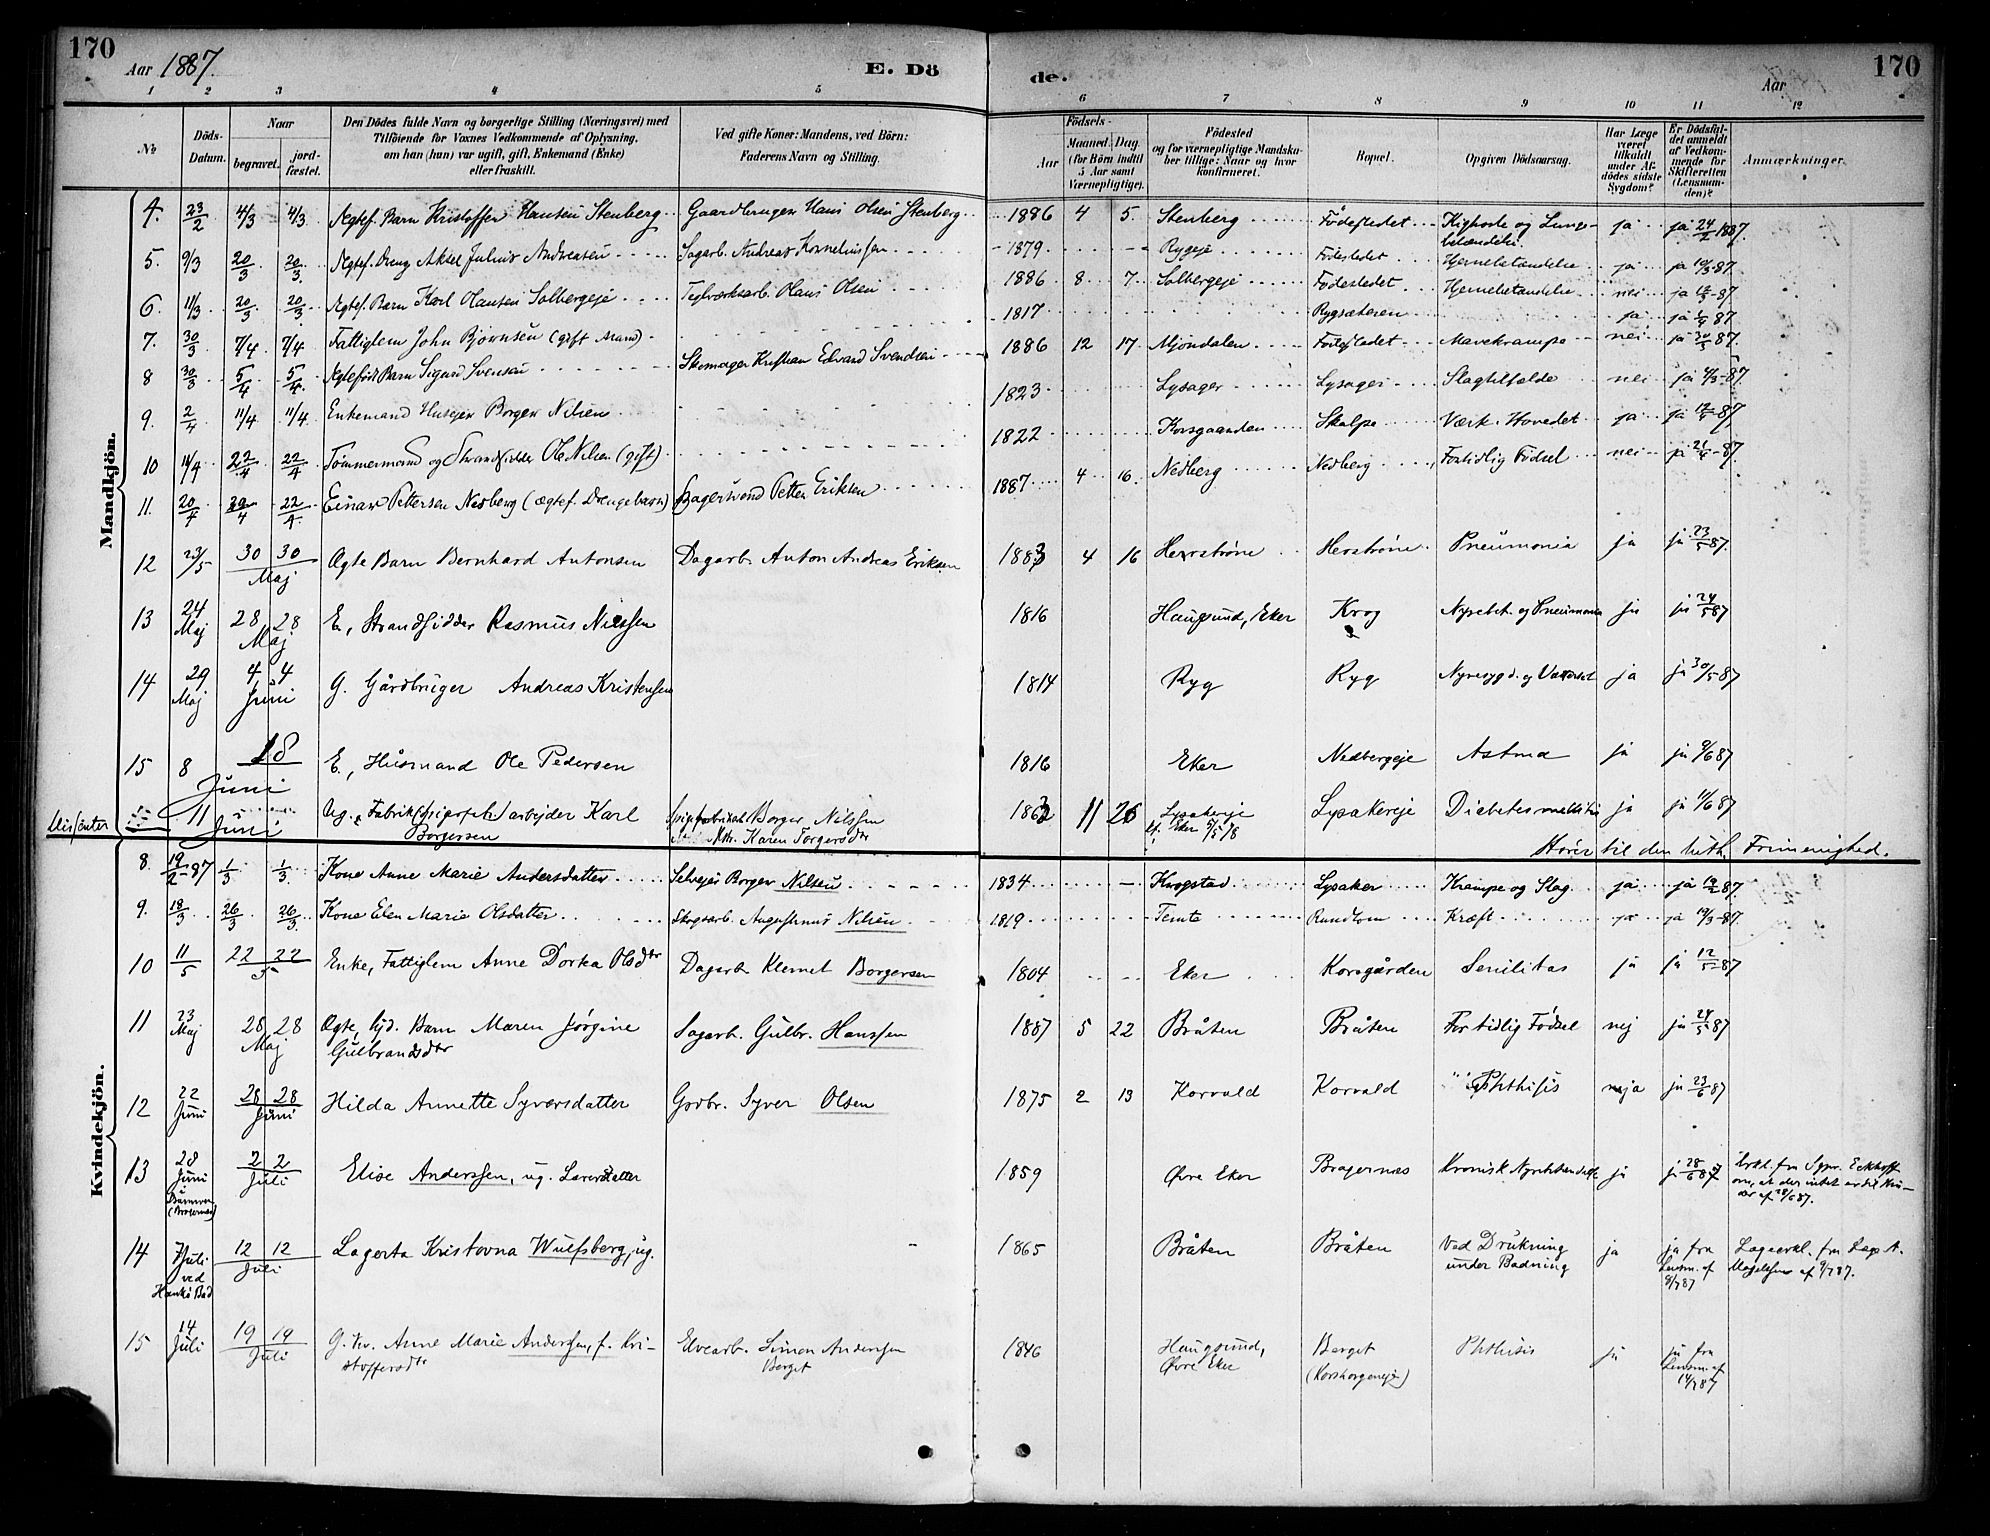 170
Aar 1887.
E. Dö
de.
Aar
170
1 2 3 4 5 6 7 8 9 10 11 12
№
Döds-
Datum.
Naar
begravet.
jord-
fæstet.
Den Dödes fulde Navn og borgerlige Stilling (Næringsvei) med
Tilföiende för Voxnes Vedkommende af Oplysning,
om han (hun) var ugift, gift, Enkemand (Enke)
eller fraskilt.
Ved gifte Koner: Mandens, ved Börn:
Faderens Navn og Stilling.
Födsels-
Aar
Maaned. Dag.
(for Börn indtil
5 Aar samt
Værnepligtige).
Födested
og for værnepligtige Mandska-
ber tillige: Naar og hvor
konfirmeret.
Bopæl.
Opgiven Dödsaarsag.
Har Læge
været
tilkaldt
under Af-
dödes sidste
Sygdom?
Er Dödsfal-
det anmeldt
af Vedkom-
mende for
Skifteretten
(Lensman-
den)?
Anmærkninger.
Mandkjön.
4. 23/2 4/3 4/3 Ægtef. Barn Kristoffer Hansen Stenberg Gaardbruger Hans Olsen Stenberg 1886 4 5 Stenberg Fødestedet Kighoste og Lunge- ja ja 24/2 1887.
betændelse.
5. 9/3 20/3 20/3 Ægtef. Dreng Aksel Julius Andreasen Sagarb. Andreas Korneliussen 1879 Rygeje Fødestedet Hjernebetændelse ja ja 10/3 87.
6. 11/3 20/3 20/3 Ægtef. Barn Karl Hansen Solbergeje Teglværksarb. Hans Olsen 1886 8 7 Solbergeje Fødestedet Hjernebetændelse nei ja 12/3 87.
7. 30/3 7/4 7/4 Fattiglem John Bjørnsen (gift Mand) 1817 Rygsæteren ja ja 87
8 30/3 5/4 5/4 Ægtefødt Barn Sigurd Svensen Skomager Kristian Edvard Svendsen 1886 12 17 Mjøndalen Fødestedet Mavekrampe nei ja 30/3 87.
9. 2/4 11/4 11/4 Enkemand Husejer Borger Nilsen 1823 Lysager Lysager Slagtilfælde nei ja 87.
10 14/4 22/4 22/4 Tømmermand og Strandsidder Ole Nilsen (gift) 1822 Korsgaarden Skalpe Værk i Hovedet ja ja 87
11. 20/4 22/4 22/4 Einar Pettersen Nedberg (ægtef. Drengebarn) Bagersvend Petter Eriksen 1887 4 16 Nedberg Nedberg Fortidlig Fødsel nei ja 21/4 87.
12 23/5 30 30 Ægte Barn Bernhard Antonsen Dagarb. Anton Andreas Eriksen 1883 4 16 Herstrøne Herstrøne Pneumonia ja ja 23/5 87.
Maj
13 24 Maj 28 28 E., Strandsidder Rasmus Nielsen 1816 Haugsund, Eker Krog Nyrebet. og Pneumonia ja ja 24/5 87
Maj
14 29 Maj 4 4 G. Gårdbruger Andreas Kristensen 1814 Ryg Ryg Nyresygd. og Vattersot ja ja 30/5 87
Juni
15 8 18 E., Husmand Ole Pedersen 1816 Eker Nedbergeje Astma ja ja 9/6 87
Juni
Dissenter 11 Juni Ug., Fabrik(spigerfabr.)arbejder Karl Borger Nilssen 1862 11 26 Lysakereje Lysakereje Diabetes mellitus ja ja 11/6 87
Borgersen Karen Torgersdtr Eker 5/5 78
Hører til den luth. Frimenighed.
Kvindekjön.
8. 19/2 87 1/3 1/3 Kone Anne Marie Andersdatter Selvejer Borger Nilsen 1834 Krogstad Lysaker Krampe og Slag ja ja 19/2 87.
9. 18/3 26/3 26/3 Kone Elen Marie Olsdatter Skogsarb. Augustinus Nilsen 1819 Temte Rundtom Kræft ja ja 19/3 87.
10 11/5 22 22 Enke, Fattiglem Anne Dorka Olsdtr Dagarb. Klemet Borgersen 1804 Eker Korsgården Senilitas ja ja 12/5 87
5
11 23 Maj 28 28 Ægte, hjd. Barn Maren Jørgine Sagarb. Gulbr. Hanssen 1887 5 22 Bråten Bråten For tidlig Fødsel nej ja 24/5 87
Maj Gulbrandsdtr
12 22 Juni 28 28 Hilda Annette Syversdatter Grdbr. Syver Olsen 1875 2 13 Korvald Korvald Phthisis ja ja 23/6 87
Juni
13 28 Juni 2 2 Elise Anderssen, ug. 1859 Øvre Eker Bragernes Kronisk Nyrebetændelse ja ja 28/6 87
Juli
(Bragernes)
af 28/6 87.
14 7 Juli 12 12 Lagerta Kristovna Wulfsberg, ug. 1865 Bråten Bråten Ved Drukning ja ja fra Lægeerkl. fra Læge A.
ved Juli under Badning Lensm. af af 9/7 87.
Hankø Bad 8/7 87
15 14 Juli 19 19 G. Kv. Anne Marie Anderssen, f. Kri- Elvearb. Simon Anderssen 1846 Haugsund, Berget Phthisis ja ja fra
Juli stoffersdtr Berget Øvre Eker (Korsborgeneje) Lensm. af
14/7 87